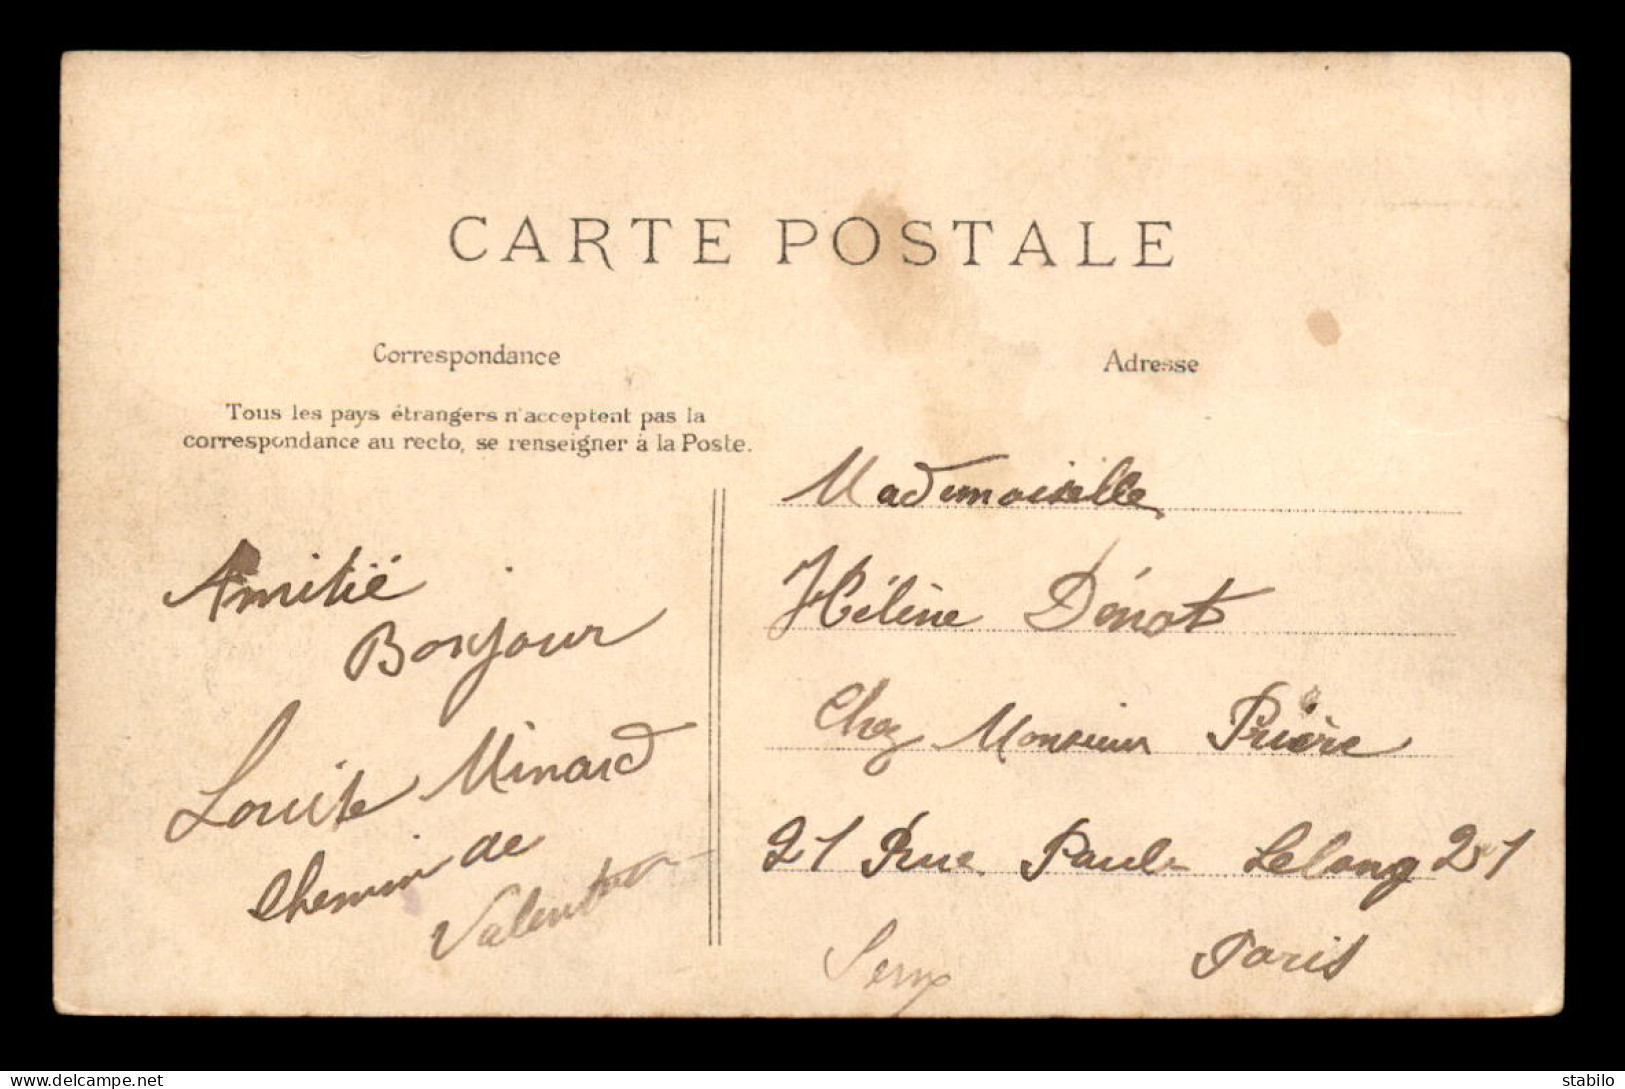 CARTE POSTALE
Correspondance
Tous les pays étrangers n'acceptent pas la
correspondance au recto, se renseigner à la Poste.
Amitié
Bonjour
Minard
Chemin de
Adresse
Mademoiselle
Hélène Dénot
Chez Monsieur Prière
21 Rue Paul Lelong 21
Paris
www.delcampe.net
stabilo